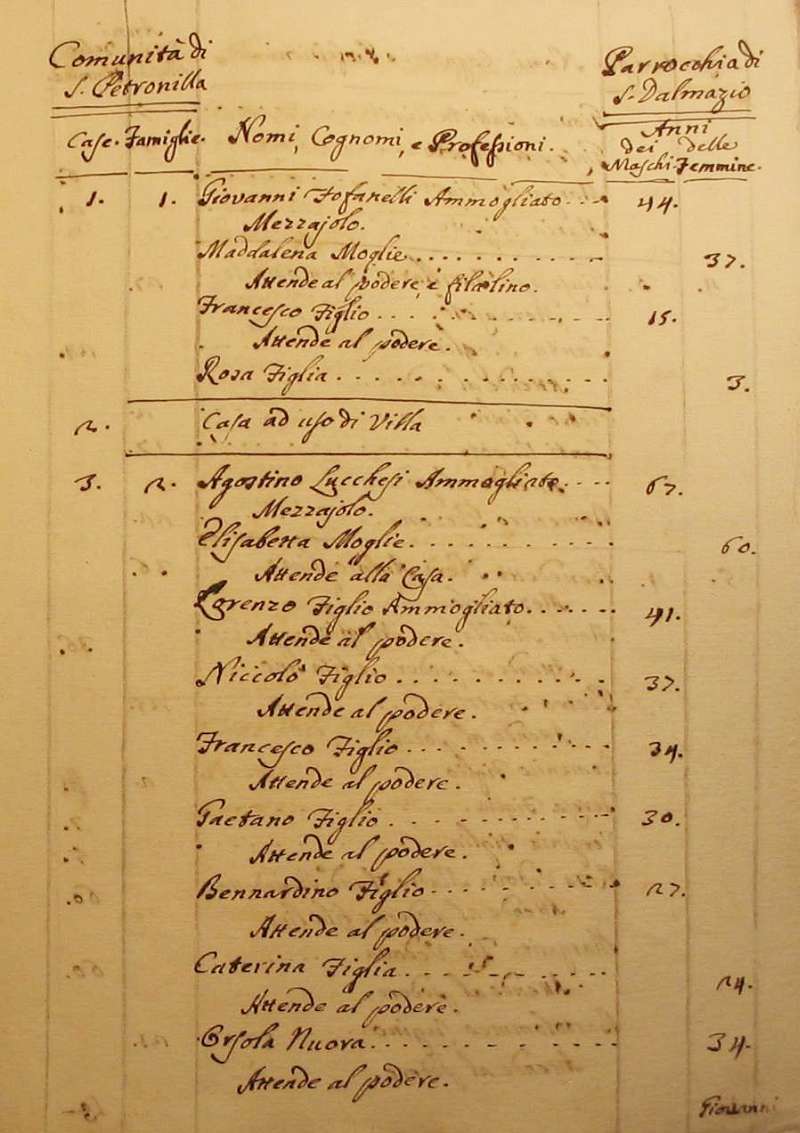 Comunità di
S. Petronilla
Parrocchia di
S. Dalmazio
Case. Famiglie. Nomi, Cognomi, e Professioni.
Anni
dei delle
Maschi. Femmine.
1. 1. Giovanni Tofanelli Ammogliato 44.
Mezzajolo.
Maddalena Moglie 37.
Attende al podere e fila lino.
Francesco Figlio 15.
Attende al podere.
Rosa Figlia 3.
2. Casa ad uso di Villa
3. 2. Agostino Lucchesi Ammogliato 67.
Mezzajolo.
Elisabetta Moglie 60.
Attende alla Casa.
Lorenzo Figlio Ammogliato 41.
Attende al podere.
Niccolò Figlio 37.
Attende al podere.
Francesco Figlio 34.
Attende al podere.
Gaetano Figlio 30.
Attende al podere.
Bernardino Figlio 27.
Attende al podere.
Caterina Figlia 24.
Attende al podere.
Orsola Nuora 34.
Attende al podere.
Giovanni